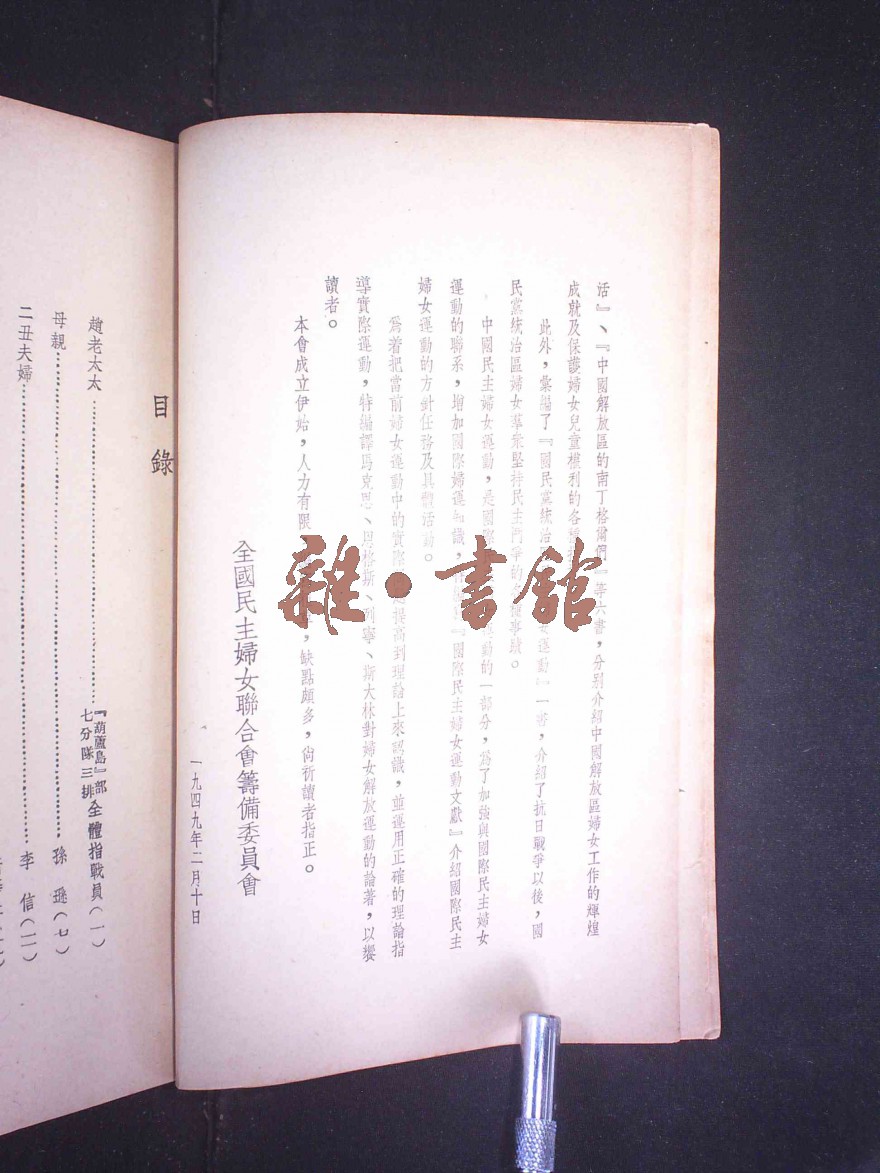 活』、『中國解放區的南丁格爾們』等六書，分別介紹中國解放區婦女工作的輝煌
成就及保護婦女兒童權利的各種
此外，彙編了『國民黨統治 女運動』一書，介紹了抗日戰爭以後，國
民黨統治區婦女羣衆堅持民主鬥爭的 事蹟。
中國民主婦女運動，是國際 運動的一部分，爲了加強與國際民主婦女
運動的聯系，增加國際婦運知識， 『國際民主婦女運動文獻』介紹國際民主
婦女運動的方針任務及具體活動。
爲着把當前婦女運動中的實際 提高到理論上來認識，並運用正確的理論指
導實際運動，特編譯馬克思、恩格斯、列寧、斯大林對婦女解放運動的論著，以饗
讀者。
本會成立伊始，人力有限 ，缺點頗多，尙祈讀者指正。
全國民主婦女聯合會籌備委員會
一九四九年二月十日
雜·書館
目錄
趙老太太……『葫蘆島』部七分隊三排全體指戰員（一）
母親……孫遜（七）
二丑夫婦……李信（一一）